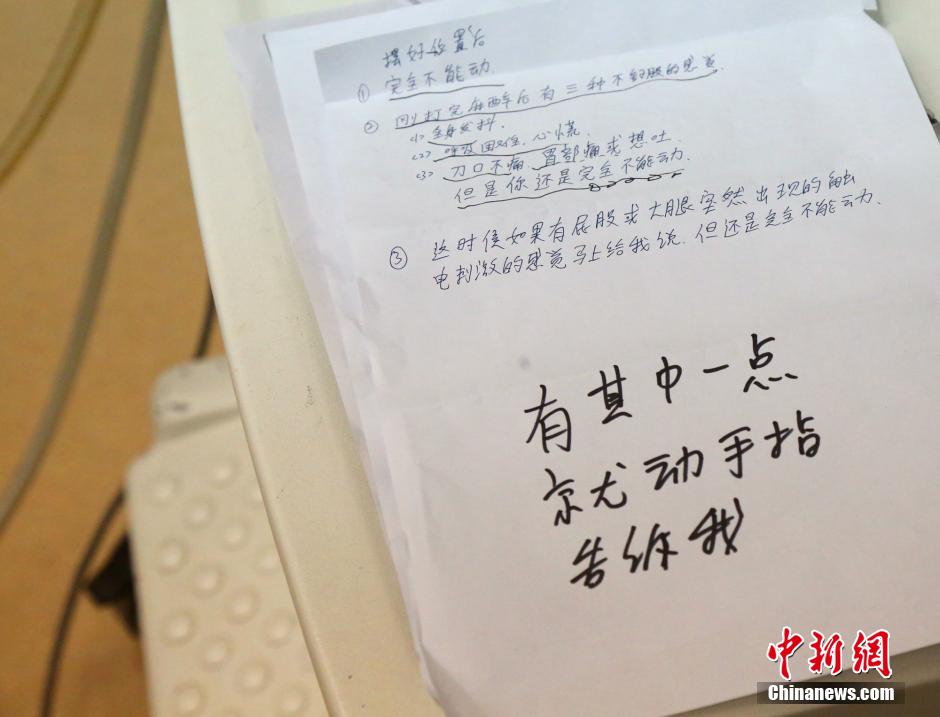 摆好位置后
① 完全不能动.
② 刚打完麻西卒后有三种不舒服的感觉.
<1> 全身发抖.
<2> 呼吸困难、心慌.
<3> 刀口不痛、胃部痛或想吐.
但是你还是完全不能动.
③ 这时候如果有屁股或大腿突然出现的触
电刺激的感觉马上给我说.但还是完全不能动.
有其中一点
就动手指
告诉我
中新网
Chinanews.com